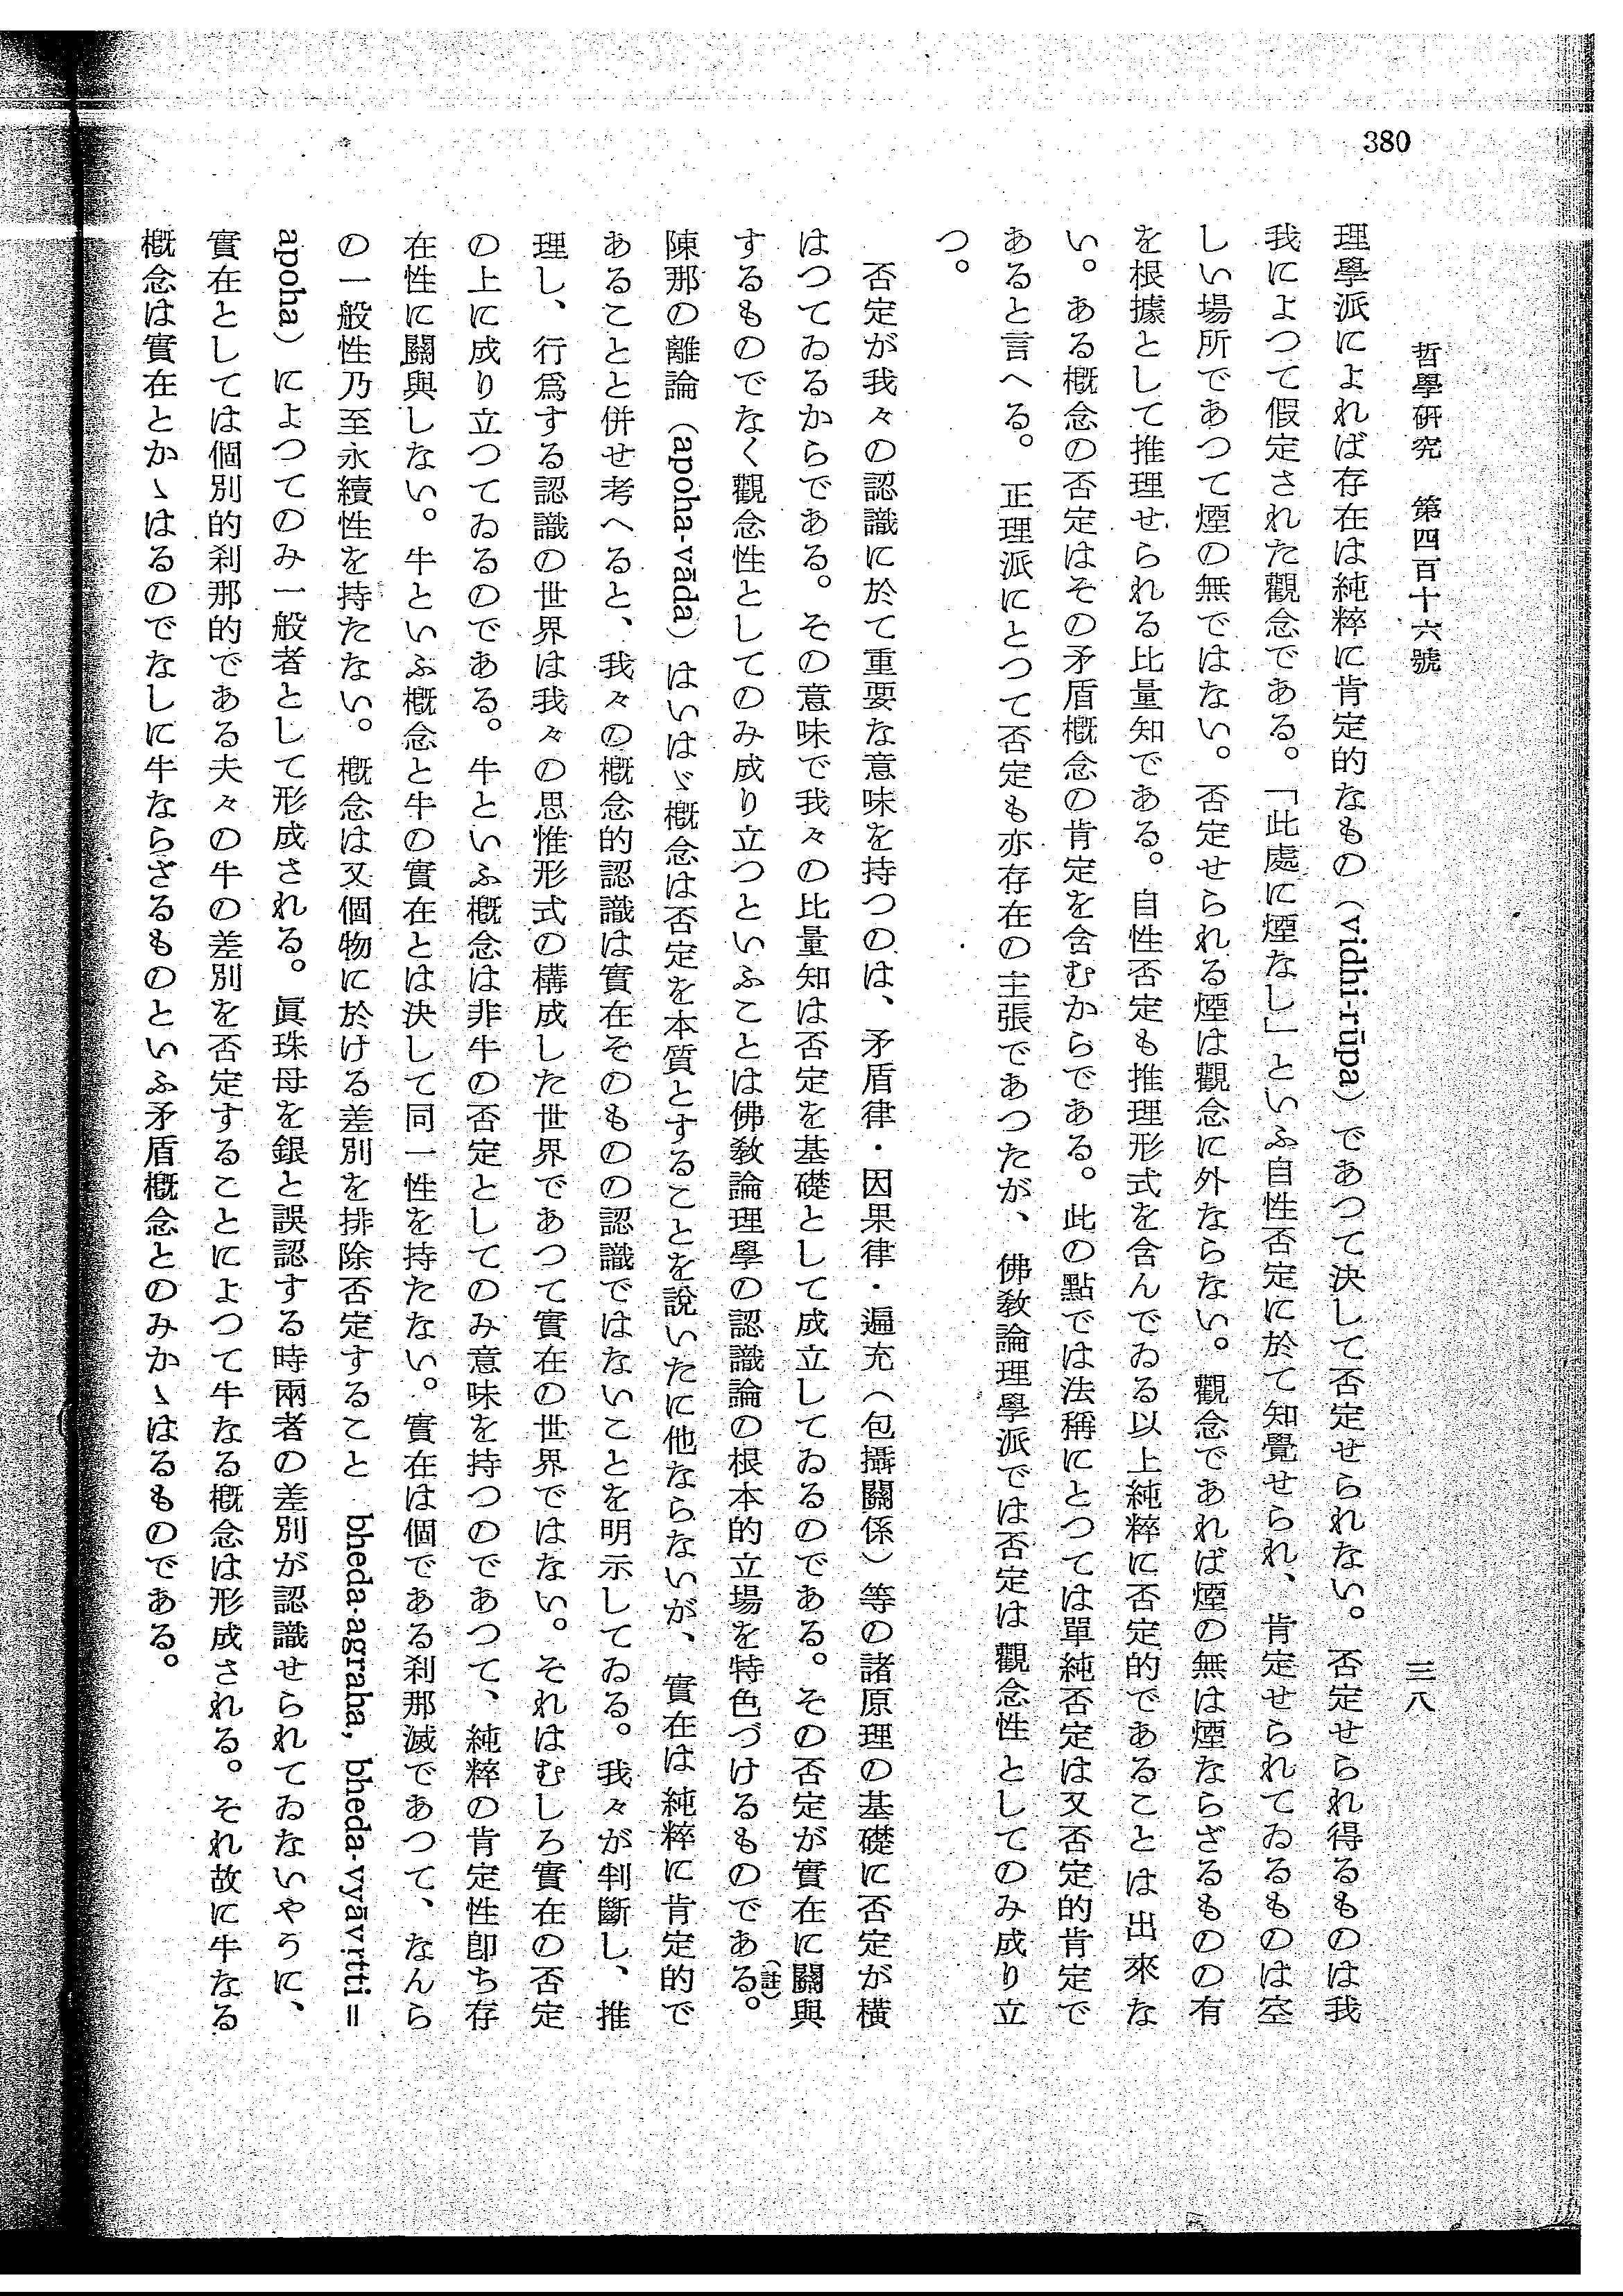 380
哲學研究　第四百十六號
三八
理學派によれば存在は純粹に肯定的なもの（vidhi-rūpa）であつて決して否定せられない。否定せられ得るものは我
我によつて假定された觀念である。「此處に煙なし」といふ自性否定に於て知覺せられ、肯定せられてゐるものは空
しい場所であつて煙の無ではない。否定せられる煙は觀念に外ならない。觀念であれば煙の無は煙ならざるものの有
を根據として推理せられる比量知である。自性否定も推理形式を含んでゐる以上純粹に否定的であることは出來な
い。ある概念の否定はその矛盾概念の肯定を含むからである。此の點では法稱にとつては單純否定は又否定的肯定で
あると言へる。正理派にとつて否定も亦存在の主張であつたが、佛敎論理學派では否定は觀念性としてのみ成り立
つ。
否定が我々の認識に於て重要な意味を持つのは、矛盾律・因果律・遍充（包攝關係）等の諸原理の基礎に否定が橫
はつてゐるからである。その意味で我々の比量知は否定を基礎として成立してゐるのである。その否定が實在に關與
するものでなく觀念性としてのみ成り立つといふことは佛敎論理學の認識論の根本的立場を特色づけるものである。（註）
陳那の離論（apoha-vāda）はいはゞ概念は否定を本質とすることを說いたに他ならないが、實在は純粹に肯定的で
あることと併せ考へると、我々の概念的認識は實在そのものの認識ではないことを明示してゐる。我々が判斷し、推
理し、行爲する認識の世界は我々の思惟形式の構成した世界であつて實在の世界ではない。それはむしろ實在の否定
の上に成り立つてゐるのである。牛といふ概念は非牛の否定としてのみ意味を持つのであつて、純粹の肯定性卽ち存
在性に關與しない。牛といふ概念と牛の實在とは決して同一性を持たない。實在は個である刹那滅であつて、なんら
の一般性乃至永續性を持たない。概念は又個物に於ける差別を排除否定すること bheda-agraha, bheda-vyāvṛtti=
apoha）によつてのみ一般者として形成される。眞珠母を銀と誤認する時兩者の差別が認識せられてゐないやうに、
實在としては個別的刹那的である夫々の牛の差別を否定することによつて牛なる概念は形成される。それ故に牛なる
概念は實在とかゝはるのでなしに牛ならざるものといふ矛盾概念とのみかゝはるものである。